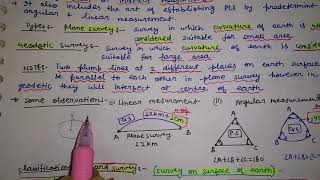 It also includes the art of establishing pts by predetermin
angular & linear measurement
Types:- Plane survey:- survey in which curvature of earth is
considered suitable for small area.
Geodetic survey:- survey in which curvature of earth is consider
suitable for large area
NOTE:- Two plumb lines @ 2 different places on earth surface
to be parallel to each other in plane survey however in
geodetic they will intersect at centre of earth.
* Some observation:- (i) Linear measurement (ii) Angular measurement
G.S
12km+1cm
A
B
Plane survey
12km
A
P.S
B
C
∠A+∠B+∠C=180
A
G.S
∠A+∠B+
survey:- (survey on surface of earth)